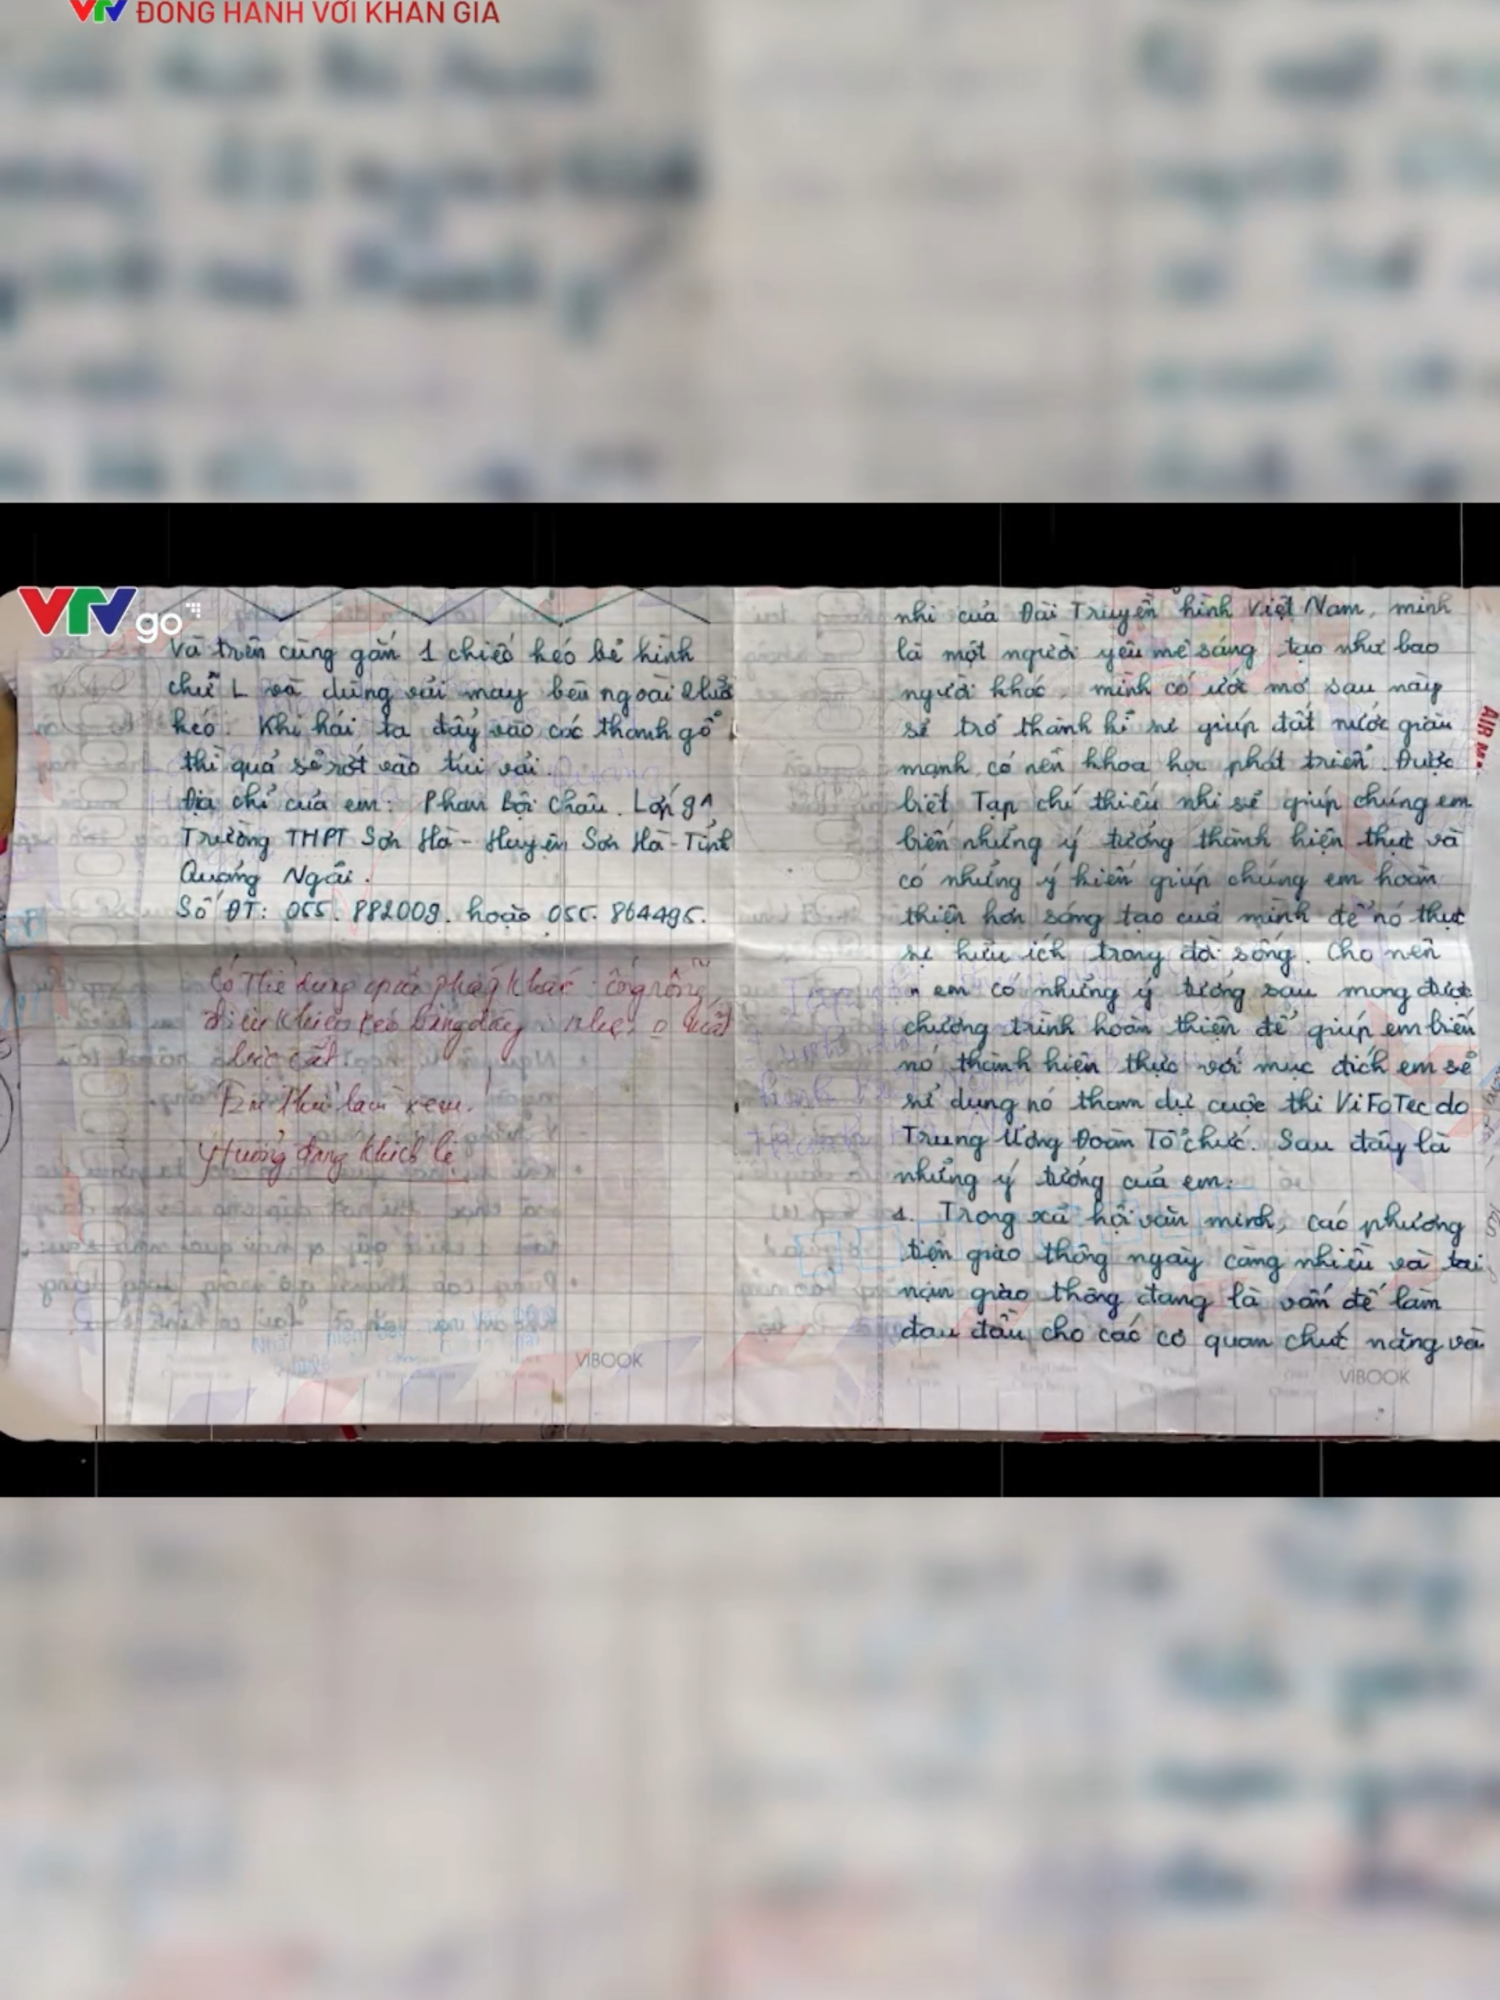 VTV ĐỒNG HÀNH VỚI KHÁN GIẢ
VTV go
Và trên cùng gắn 1 chiếc kéo bẻ hình
chữ L và dùng vải may bên ngoài
kéo. Khi hái ta đẩy vào các thanh gỗ
thì quả sẽ rớt vào túi vải.
Địa chỉ của em: Phan Bội Châu. Lớp
Trường THPT Sơn Hà - Huyện Sơn Hà - Tỉnh
Quảng Ngãi.
Số ĐT: 055. 882009. hoặc 055. 864495.
Có thể dùng khác ống rỗng
điều khiển kéo bằng dây nhẹ
Em thử làm xem!
Ý tưởng đáng khích lệ
VIBOOK
nhi của Đài Truyền hình Việt Nam, mình
là một người yêu mê sáng tạo như bao
người khác, mình có ước mơ sau này
sẽ trở thành kĩ sư giúp đất nước giàu
mạnh, có nền khoa học phát triển. Được
biết Tạp chí thiếu nhi sẽ giúp chúng em
biến những ý tưởng thành hiện thực và
có những ý kiến giúp chúng em hoàn
thiện hơn sáng tạo của mình để nó thực
sự hữu ích trong đời sống. Cho nên
em có những ý tưởng sau mong được
chương trình hoàn thiện để giúp em biến
nó thành hiện thực với mục đích em sẽ
sử dụng nó tham dự cuộc thi ViFoTec do
Trung Ương Đoàn Tổ chức. Sau đây là
những ý tưởng của em:
1. Trong xã hội văn minh, các phương
tiện giao thông ngày càng nhiều và tai
nạn giao thông đang là vấn đề làm
đau đầu cho các cơ quan chức năng và
VIBOOK